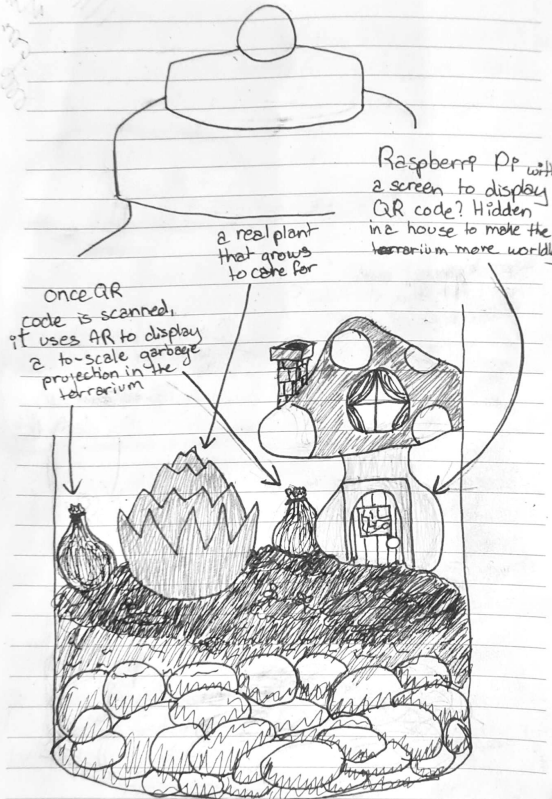 Raspberri Pi with
a screen to display
QR code? Hidden
in a house to make the
terrarium more worldly
a real plant
that grows
to care for
once QR
code is scanned,
it uses AR to display
a to-scale garbage
projection in the
terrarium